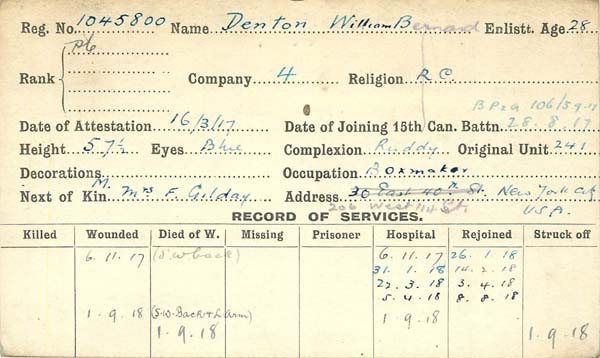 Reg. No. 1045800 Name Denton William Bernard Enlistt. Age 28
Rank Pte Company 4 Religion R.C.
B Pt II Q 106/5 9-17
Date of Attestation 16/3/17 Date of Joining 15th Can. Battn. 28.8.17
Height 5 7½ Eyes Blue Complexion Ruddy Original Unit 241
Decorations Occupation Boxmaker
Next of Kin M. Mrs F. Gilday Address 30 East 40th St. New York City
206 West 114 St. U.S.A.
RECORD OF SERVICES.
Killed Wounded Died of W. Missing Prisoner Hospital Rejoined Struck off
6.11.17 (S.W back) 6.11.17 26.1.18
31.1.18 14.2.18
22.3.18 3.4.18
5.4.18 8.8.18
1.9.18 (S.W. Back & L Arm) 1.9.18
1.9.18 1.9.18